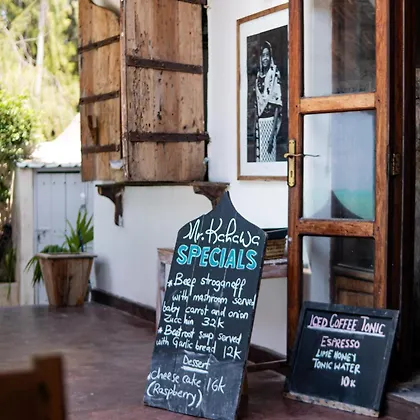 Mr. Kahawa
SPECIALS
*Beep stroggnoff
with mashroom served
baby carrot and onion
zucchin 32k
*Beatroot soup served
with Garlic bread 12k
Dessert
cheese cake 16k
(Raspberry)
ICED COFFEE TONIC
ESPRESSO
LIME HONEY
TONIC WATER
10K